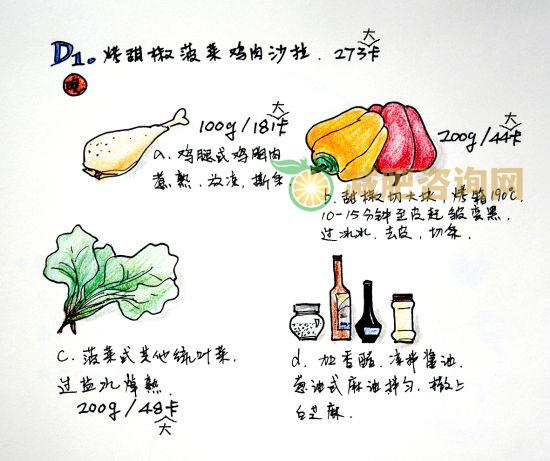 D1。烤甜椒菠菜鸡肉沙拉.273大卡
晚
100g/181大卡
a.鸡腿或鸡胸肉
煮熟、放凉、撕条
200g/44大卡
b.甜椒切大块,烤箱190℃
10-15分钟至皮起皱变黑,
过冰水,去皮,切条.
减肥咨询网
c.菠菜或其他绿叶菜,
过盐水焯熟
200g/48大卡
d.加香醋,凉拌酱油,
葱油或麻油拌匀,撒上
白芝麻.